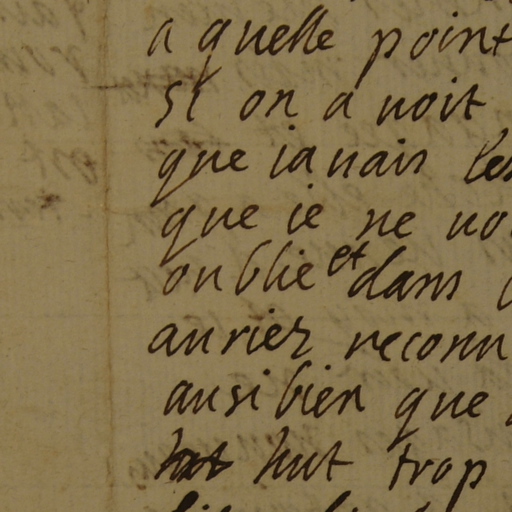 a quelle point
si on a uoit
que iauais les
que ie ne uo
oublie et dans
auriez reconn
ausi bien que
hut trop